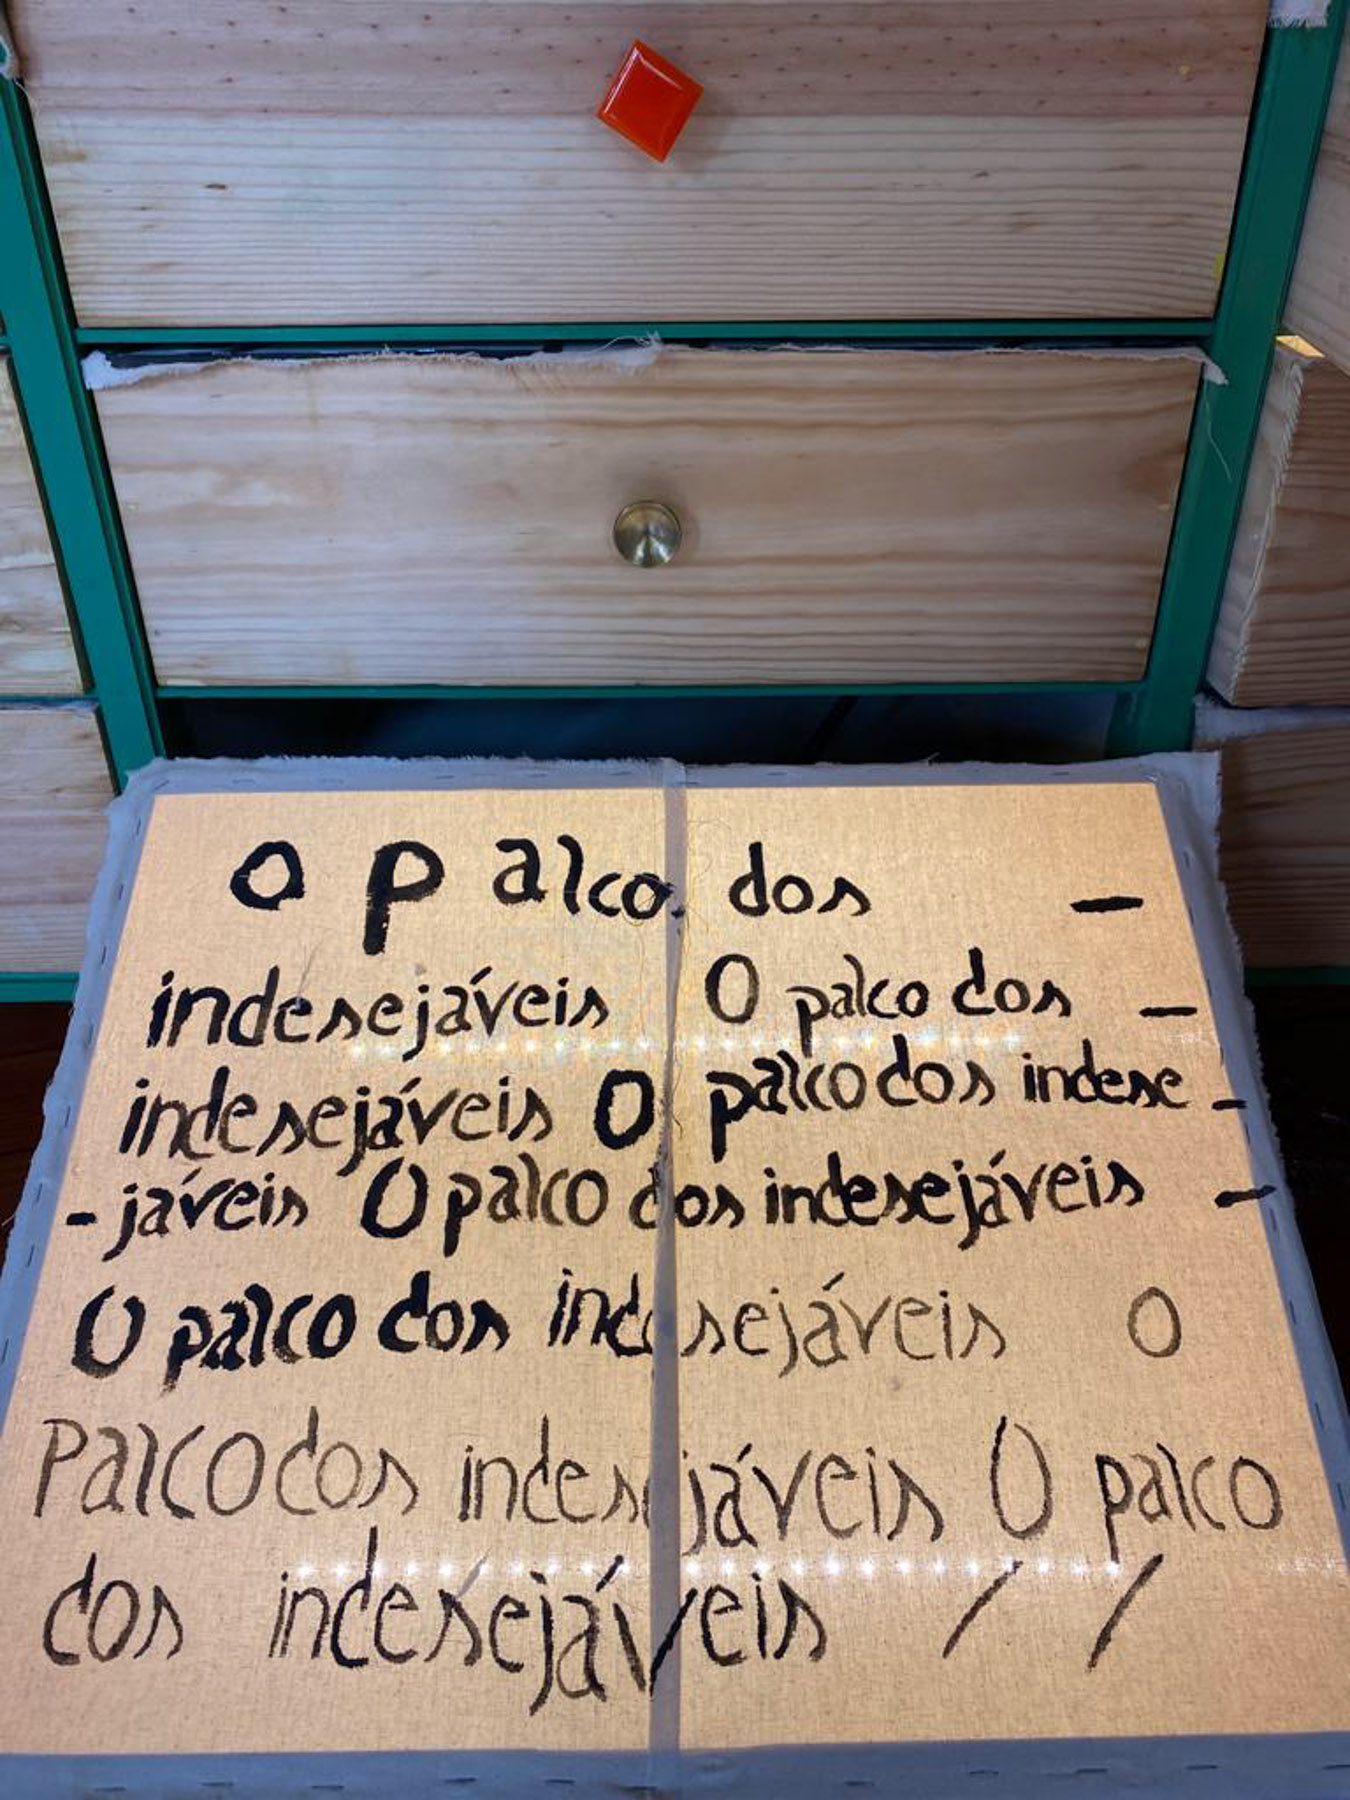 O palco dos -
indesejáveis O palco dos -
indesejáveis O palco dos indese -
- jáveis O palco dos indesejáveis -
O palco dos indesejáveis O
Palco dos indesejáveis O palco
dos indesejáveis / /